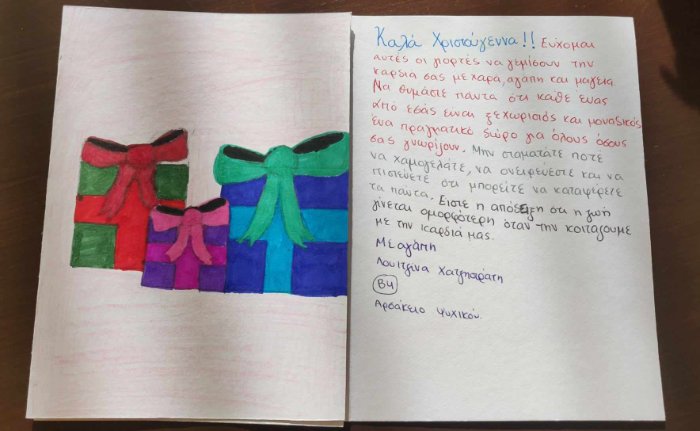 Καλά Χριστούγεννα!! Εύχομαι
αυτές οι γιορτές να γεμίσουν την
καρδιά σας με χαρά, αγάπη και μαγεία.
Να θυμάστε πάντα ότι κάθε ένας
από εσάς είναι ξεχωριστός και μοναδικός,
ένα πραγματικό δώρο για όλους όσους
σας γνωρίζουν. Μην σταματάτε ποτέ
να χαμογελάτε, να ονειρεύεστε και να
πιστεύετε ότι μπορείτε να καταφέρετε
τα πάντα. Είστε η απόδειξη ότι η ζωή
γίνεται ομορφότερη όταν την κοιτάζουμε
με την καρδιά μας.
Με αγάπη
Λουιτζίνα Χατζηπαράτη
Β4
Αρσάκειο Ψυχικού